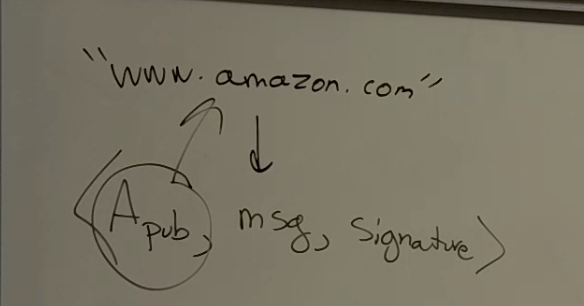 "www.amazon.com"
<A pub, msg, Signature>